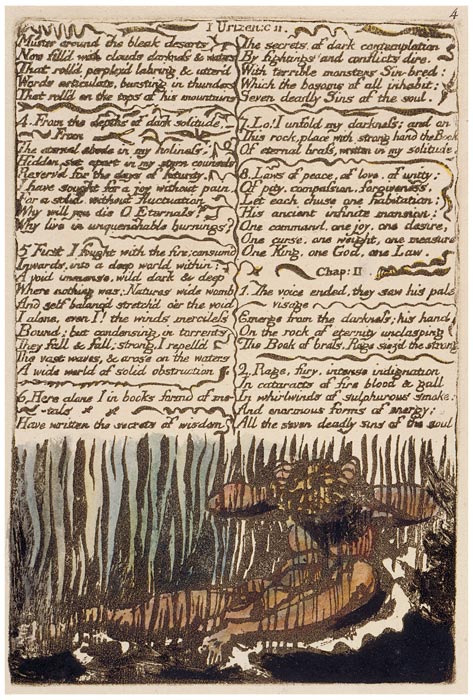 4
I Urizen: C II.
Muster around the bleak desarts
Now fill'd with clouds, darkness & waters
That roll'd perplex'd labring & utter'd
Words articulate, bursting in thunders
That roll'd on the tops of his mountains
4. From the depths of dark solitude.
From
The eternal abode in my holiness,
Hidden, set apart in my stern counsels
Reserv'd for the days of futurity,
I have sought for a joy without pain,
For a solid without fluctuation
Why will you die O Eternals?
Why live in unquenchable burnings?
5 First I fought with the fire; consum'd
Inwards, into a deep world within:
A void immense, wild dark & deep,
Where nothing was; Natures wide womb
And self balanc'd stretch'd o'er the void
I alone, even I! the winds merciless
Bound; but condensing, in torrents
They fall & fall; strong, I repell'd
The vast waves, & arose on the waters
A wide world of solid obstruction
6. Here alone I in books formd of me-
-tals
Have written the secrets of wisdom
The secrets of dark contemplation
By fightings and conflicts dire,
With terrible monsters Sin-bred:
Which the bosoms of all inhabit;
Seven deadly Sins of the soul.
7. Lo! I unfold my darkness: and on
This rock, place with strong hand the Book
Of eternal brass, written in my solitude.
8. Laws of peace, of love, of unity:
Of pity, compassion, forgiveness.
Let each chuse one habitation:
His ancient infinite mansion:
One command, one joy, one desire,
One curse, one weight, one measure
One King, one God, one Law.
Chap: II
1. The voice ended, they saw his pale
visage
Emerge from the darkness; his hand
On the rock of eternity unclasping
The Book of brass. Rage siez'd the strong
2. Rage, fury, intense indignation
In cataracts of fire blood & gall
In whirlwinds of sulphurous smoke:
And enormous forms of energy;
All the seven deadly sins of the soul